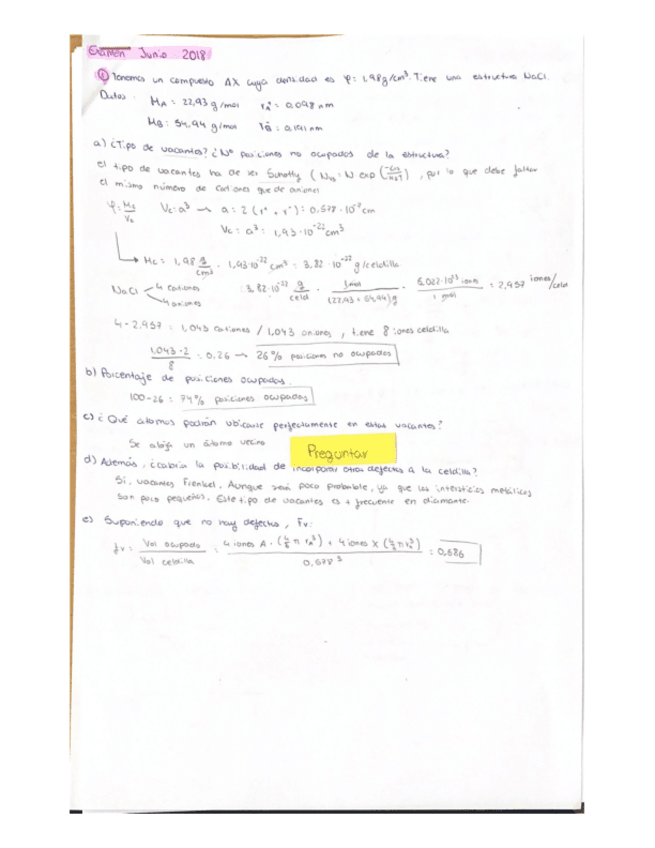 Examen Junio 2018
① Tenemos un compuesto AX cuya densidad es ρ = 1,98 g/cm³. Tiene una estructura NaCl.
Datos. MA = 22,93 g/mol rA⁺ = 0,098 nm
MB = 54,94 g/mol
a) ¿Tipo de vacantes? ¿Nº posiciones no ocupadas de la estructura?
el tipo de vacantes ha de ser , por lo que debe faltar
el mismo número de cationes que de aniones
Vc = a³ → a = 2 (r⁺ + r⁻) = 0,578 · 10⁻⁷ cm
Vc = a³ = 1,93 · 10⁻²² cm³
Mc = 1,98 g/cm³ · 1,93·10⁻²² cm³ = 3,82 · 10⁻²² g/celdilla
NaCl 4 cationes = 3,82·10⁻²² g/celd · 1mol/(22,93 + 54,94) g · iones/1 mol = 2,957 iones/celd
4 aniones
4 - 2,957 = 1,043 cationes / 1,043 aniones, tiene 8 iones celdilla
1,043·2/8 = 0,26 → 26% posiciones no ocupadas
b) Porcentaje de posiciones ocupadas.
100-26 = 74% posiciones ocupadas
c) ¿Qué átomos podrán ubicarse perfectamente en estas vacantes?
Se aloja un átomo vecino
Preguntar
d) Además, ¿cabría la posibilidad de incorporar otros defectos a la celdilla?
Sí, vacantes Frenkel. Aunque será poco probable, ya que los intersticios metálicos
son poco pequeños. Este tipo de vacantes es + frecuente en diamante.
e) Suponiendo que no hay defectos, Fv:
fv = Vol ocupado/Vol celdilla = 4 iones A · (4/3 π rA³) + 4 iones X (4/3 π rX³)/0,578³ = 0,686